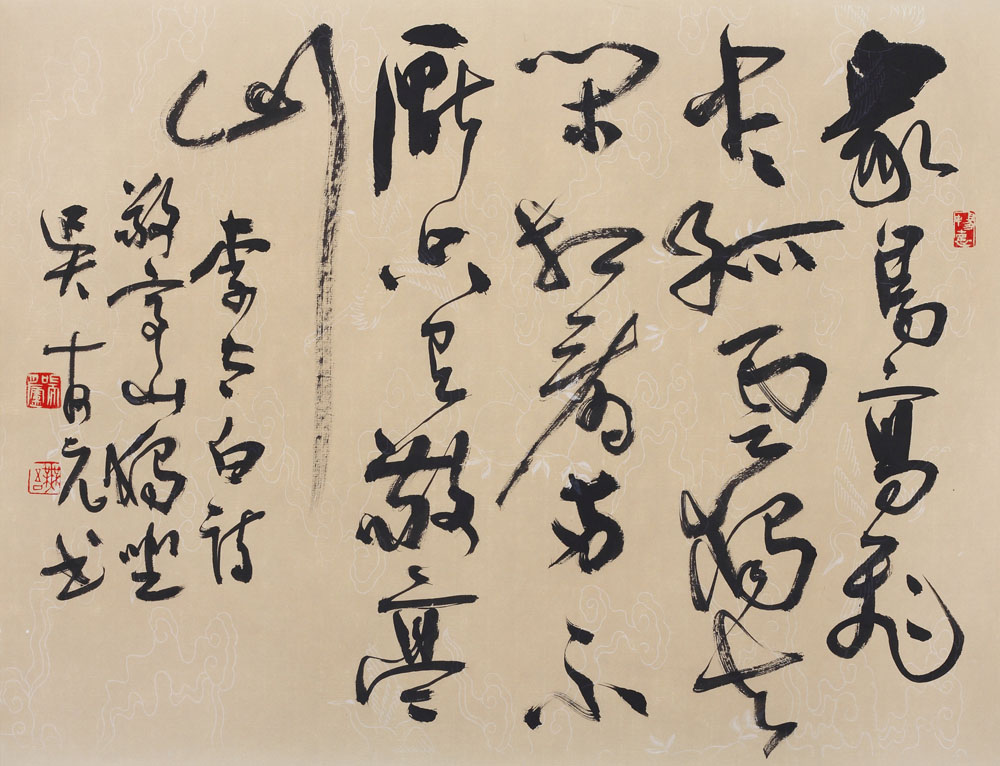 衆鳥高飛
尽孤雲獨去
閑相看两不
厭只有敬亭
山
李太白詩
敬亭山獨坐
吴元书